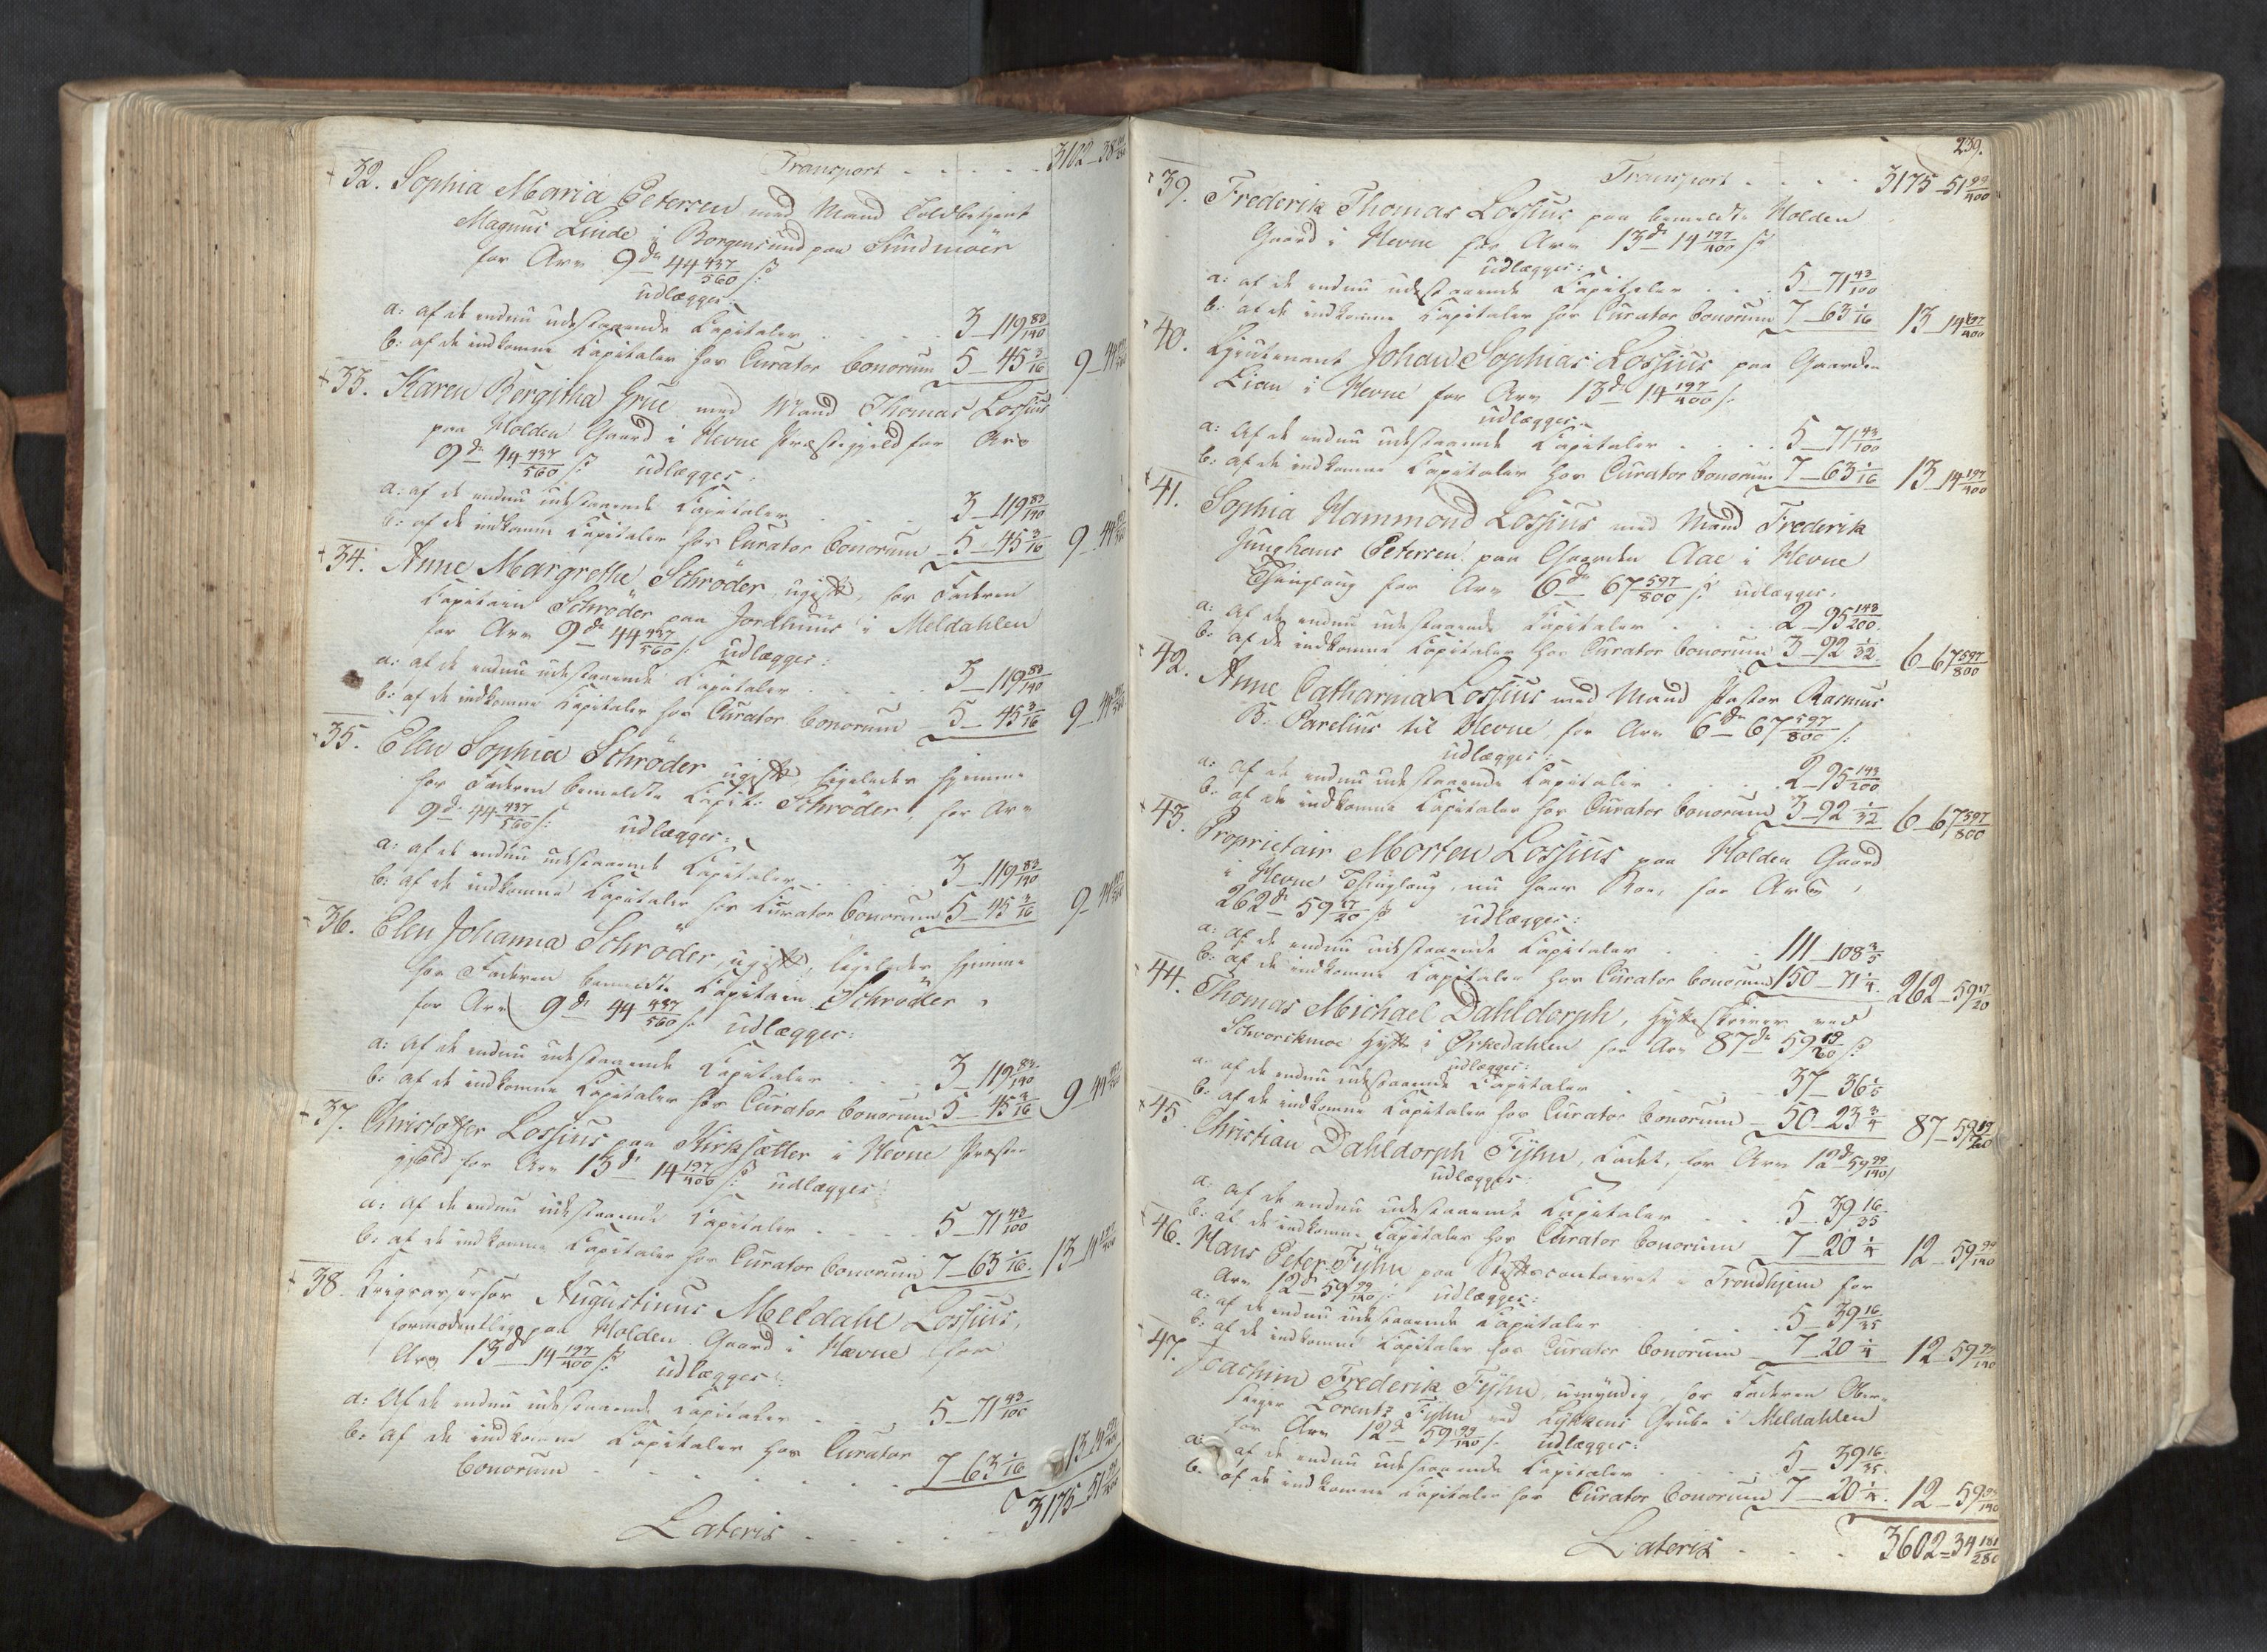 Transport - - - - - 3102 - 38
32. Sophia Maria Petersen med Mand Toldbetjent
Magnus Linde i Borgensund paa Sundmøer
for Arv 9 d 44 437/560 s:
udlægges:
a: af de endnu udestaaende Capitaler . . . . 3 - 119 83/140
b: af de indkomne Capitaler hos Curator bonorum 5 - 45 3/16 9 - 44
33. Karen Bergitha Grue med Mand Thomas Lossius
paa Holden Gaard i Hevne Præstegjeld for Arv
9 d 44 437/560 s: udlægges:
a: af de endnu udestaaende Capitaler . . . 3 - 119 83/140
b: af de indkomne Capitaler hos Curator bonorum 5 - 45 3/16 9 - 44
34. Anne Margrethe Schrøder, ugift, hos Faderen
Capitain Schrøder paa Jordhuus i Meldahlen
for Arv 9 d 44 437/560 s: udlægges:
a: af de endnu udestaaende Capitaler . . . 3 - 119 83/140
b: af de indkomne Capitaler hos Curator bonorum 5 - 45 3/16 9 - 44
35. Elen Sophia Schrøder ugift ligeledes hjemme
hos Faderen bemeldte Capit: Schrøder, for Arv
9 d 44 437/560 s: udlægges:
a: af de endnu udestaaende Capitaler . . . . 3 - 119 83/140
b: af de indkomne Capitaler hos Curator bonorum 5 - 45 3/16 9 - 44
36. Elen Johanna Schrøder, ugift, ligeledes hjemme
hos Faderen bemeldte Capitain Schrøder,
for Arv 9 d 44 437/560 s: udlægges:
a: af de endnu udestaaende Capitaler . . . . 3 - 119 83/140
b: af de indkomne Capitaler hos Curator bonorum 5 - 45 3/16 9 - 44
37. Christoffer Lossius paa Kirksætter i Hevne Præste-
gjeld for Arv 13 d 14 197/400 s: udlægges:
a: af de endnu udestaaende Capitaler . . . . 5 - 71 43/100
b: af de indkomne Capitaler hos Curator bonorum 7 - 63 1/16 13 - 14
38. Krigsassessor Augustinus Meldahl Lossius,
formodentlig paa Holden Gaard i Hævne for
Arv 13 d 14 197/400 s: udlægges:
a: af de endnu udestaaende Capitaler . . . 5 - 71 43/100
b: af de indkomne Capitaler hos Curator
bonorum . . . . . . 7 - 63 1/16 13 - 14
Lateris . . . . 3175 - 51
239.
Transport . . . . 3175 - 51 99/400
39. Frederik Thomas Lossius paa bemeldte Holden
Gaard i Hevne for Arv 13 d 14 197/400 s:
udlægges:
a: af de endnu udestaaende Capitaler . . . 5 - 71 43/100
b: af de indkomne Capitaler hos Curator bonorum 7 - 63 1/16 13 - 14 197/400
40. Lieutenant Johan Sophias Lossius paa Gaarden
Lian i Hevne for Arv 13 d 14 197/400 s:
udlægges:
a: Af de endnu udestaaende Capitaler . . . 5 - 71 43/100
b: af de indkomne Capitaler hos Curator bonorum 7 - 63 1/16 13 - 14 197/400
41. Sophia Hammond Lossius med Mand Frederik
Junghans Petersen paa Gaarden Aae i Hevne
Thinglaug for Arv 6 d 67 597/800 s: udlægges:
a: Af de endnu udestaaende Capitaler . . 2 - 95 143/200
b: af de indkomne Capitaler hos Curator bonorum 3 - 92 1/32 6 - 67 597/800
42. Anne Catharina Lossius med Mand Pastor Rasmus
B. Parelius til Hevne, for Arv 6 d 67 597/800 s:
udlægges:
a: Af de endnu udestaaende Capitaler . . . 2 - 95 143/200
b: af de indkomne Capitaler hos Curator bonorum 3 - 92 1/32 6 - 67 597/800
43. Proprietair Morten Lossius paa Holden Gaard
i Hevne Thinglaug, nu hans Boe, for Arv,
262 d 59 17/20 s: udlægges:
a: af de endnu udestaaende Capitaler . . . 111 - 108 3/5
b: af de indkomne Capitaler hos Curator bonorum 150 - 71 1/4 262 - 59 17/20
44. Thomas Michael Dahldorph, Hytteskriver ved
Svorckmoe Hytte i Ørkedahlen for Arv 87 d 59 19/20 s:
udlægges:
a: af de endnu udestaaende Capitaler . . 37 - 36 1/5
b: af de indkomne Capitaler hos Curator bonorum 50 - 23 3/4 87 - 59 19/20
45. Christian Dahldorph Fyhn, Cadet, for Arv 12 d 59 99/140
udlægges:
a: af de endnu udestaaende Capitaler . . . 5 - 39 16/35
b: af de indkomne Capitaler hos Curator bonorum 7 - 20 1/4 12 - 59 99/140
46. Hans Peter Fyhn paa Stiftscontoiret i Trondhjem for
Arv 12 d 59 99/140 s: udlægges:
a: af de endnu udestaaende Capitaler . . . 5 - 39 16/35
b: af de indkomne Capitaler hos Curator bonorum 7 - 20 1/4 12 - 59 99/140
47. Joachim Frederik Fyhn umyndig, hos Faderen Ober-
stiger Lorentz Fyhn ved Løkkens Grube i Meldahlen
for Arv 12 d 59 99/140 s: udlægges:
a: af de endnu udestaaende Capitaler . . . 5 - 39 16/35
b: af de indkomne Capitaler hos Curator bonorum 7 - 20 1/4 12 - 59 99/140
Lateris . . . 3602 - 34 181/280